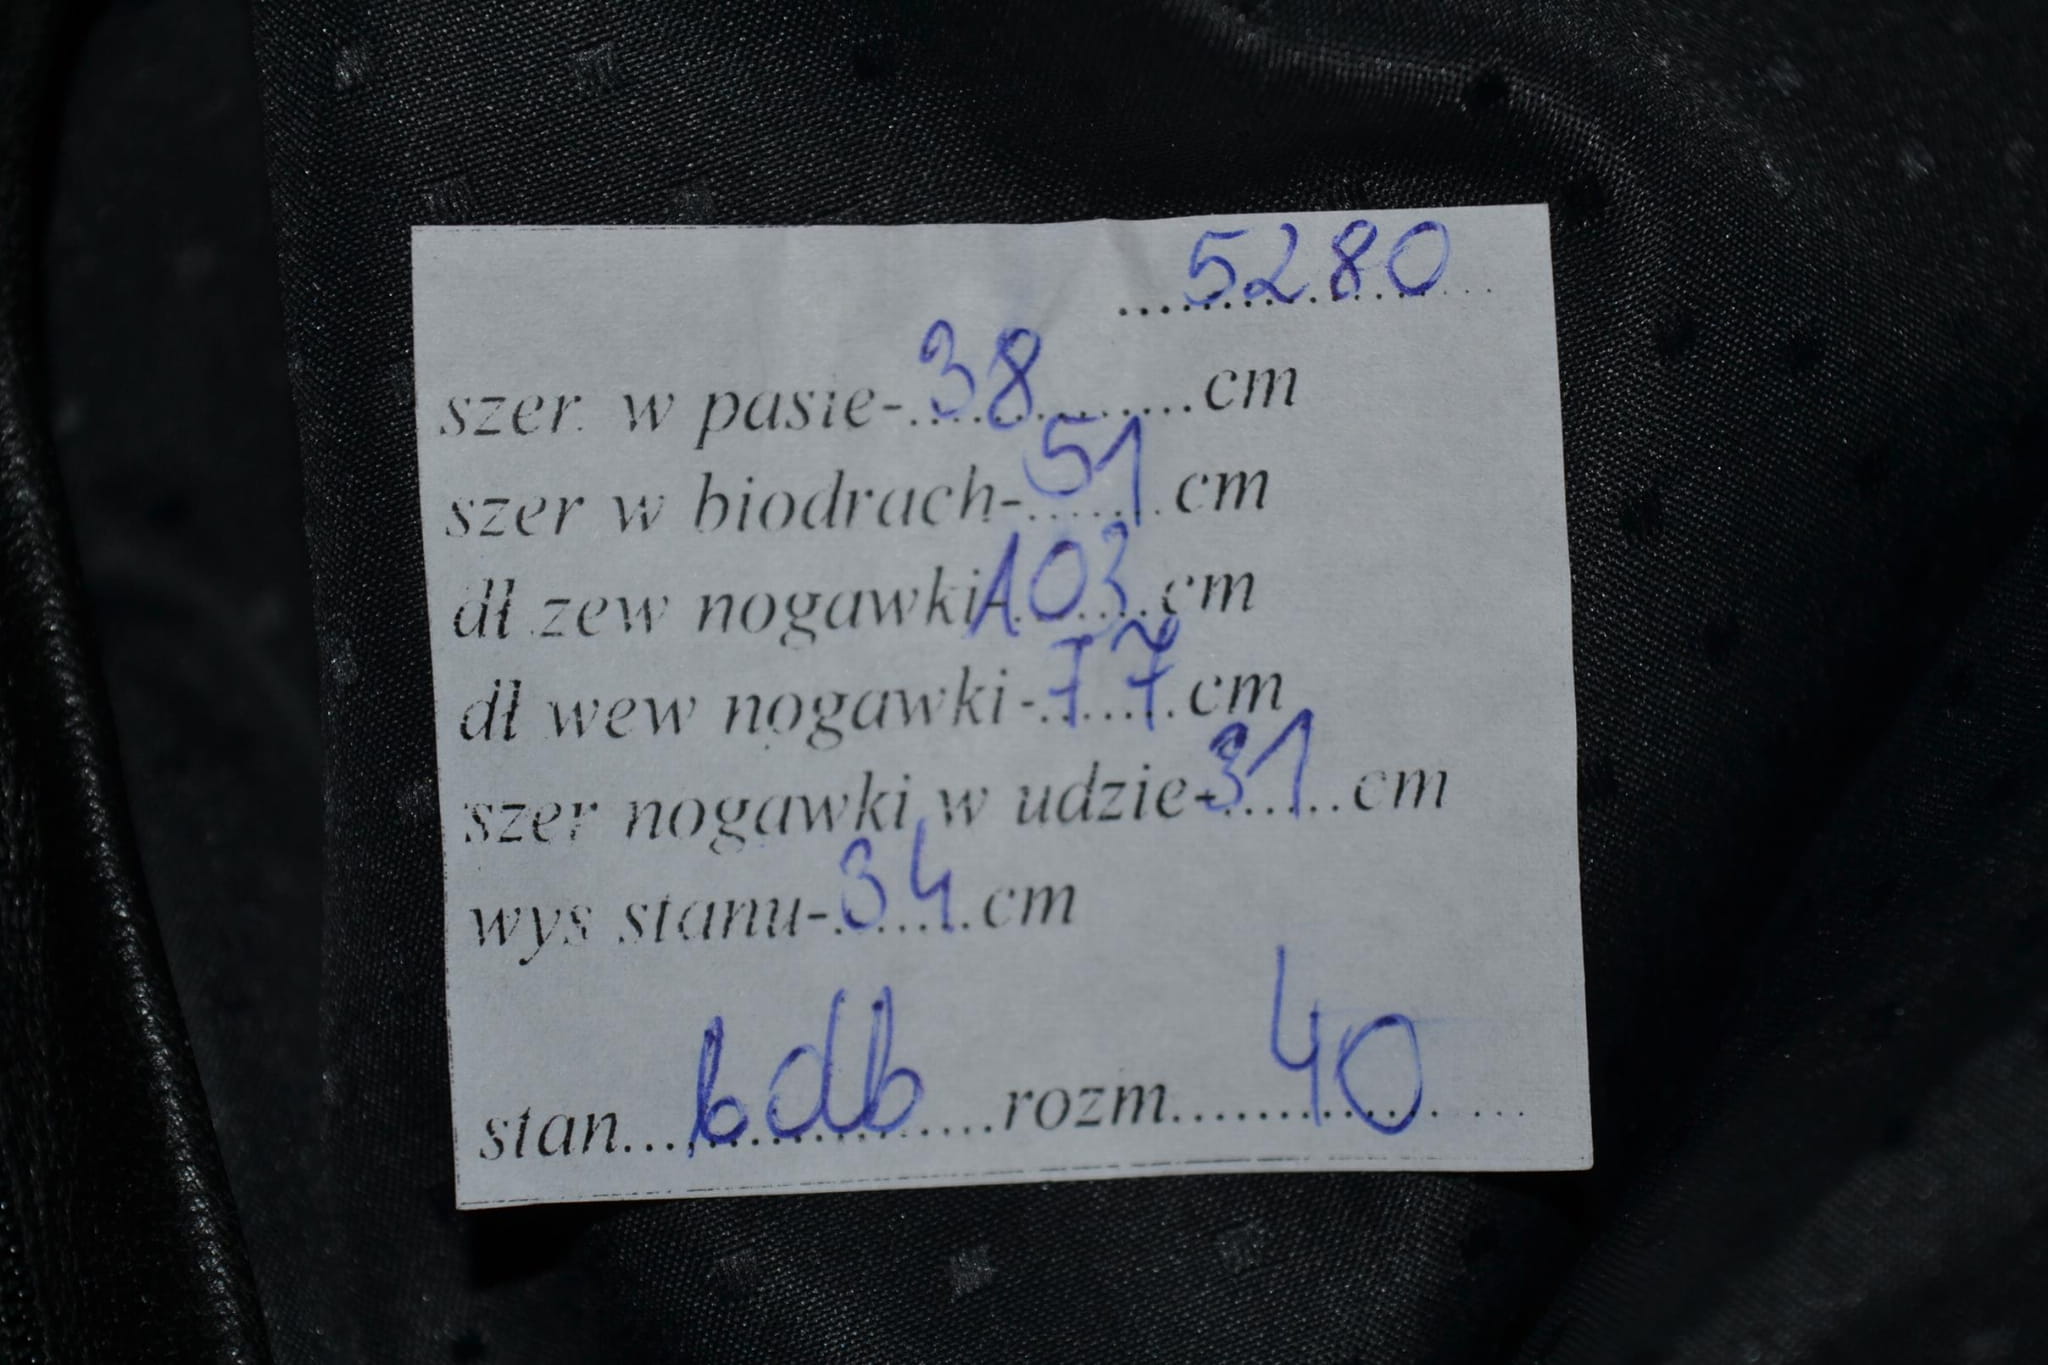 5280
szer. w pasie-38cm
szer w biodrach-51cm
dł zew nogawki-103cm
dł wew nogawki-77cm
szer nogawki w udzie-31cm
wys stanu-34cm
stan...bdb...rozm...40